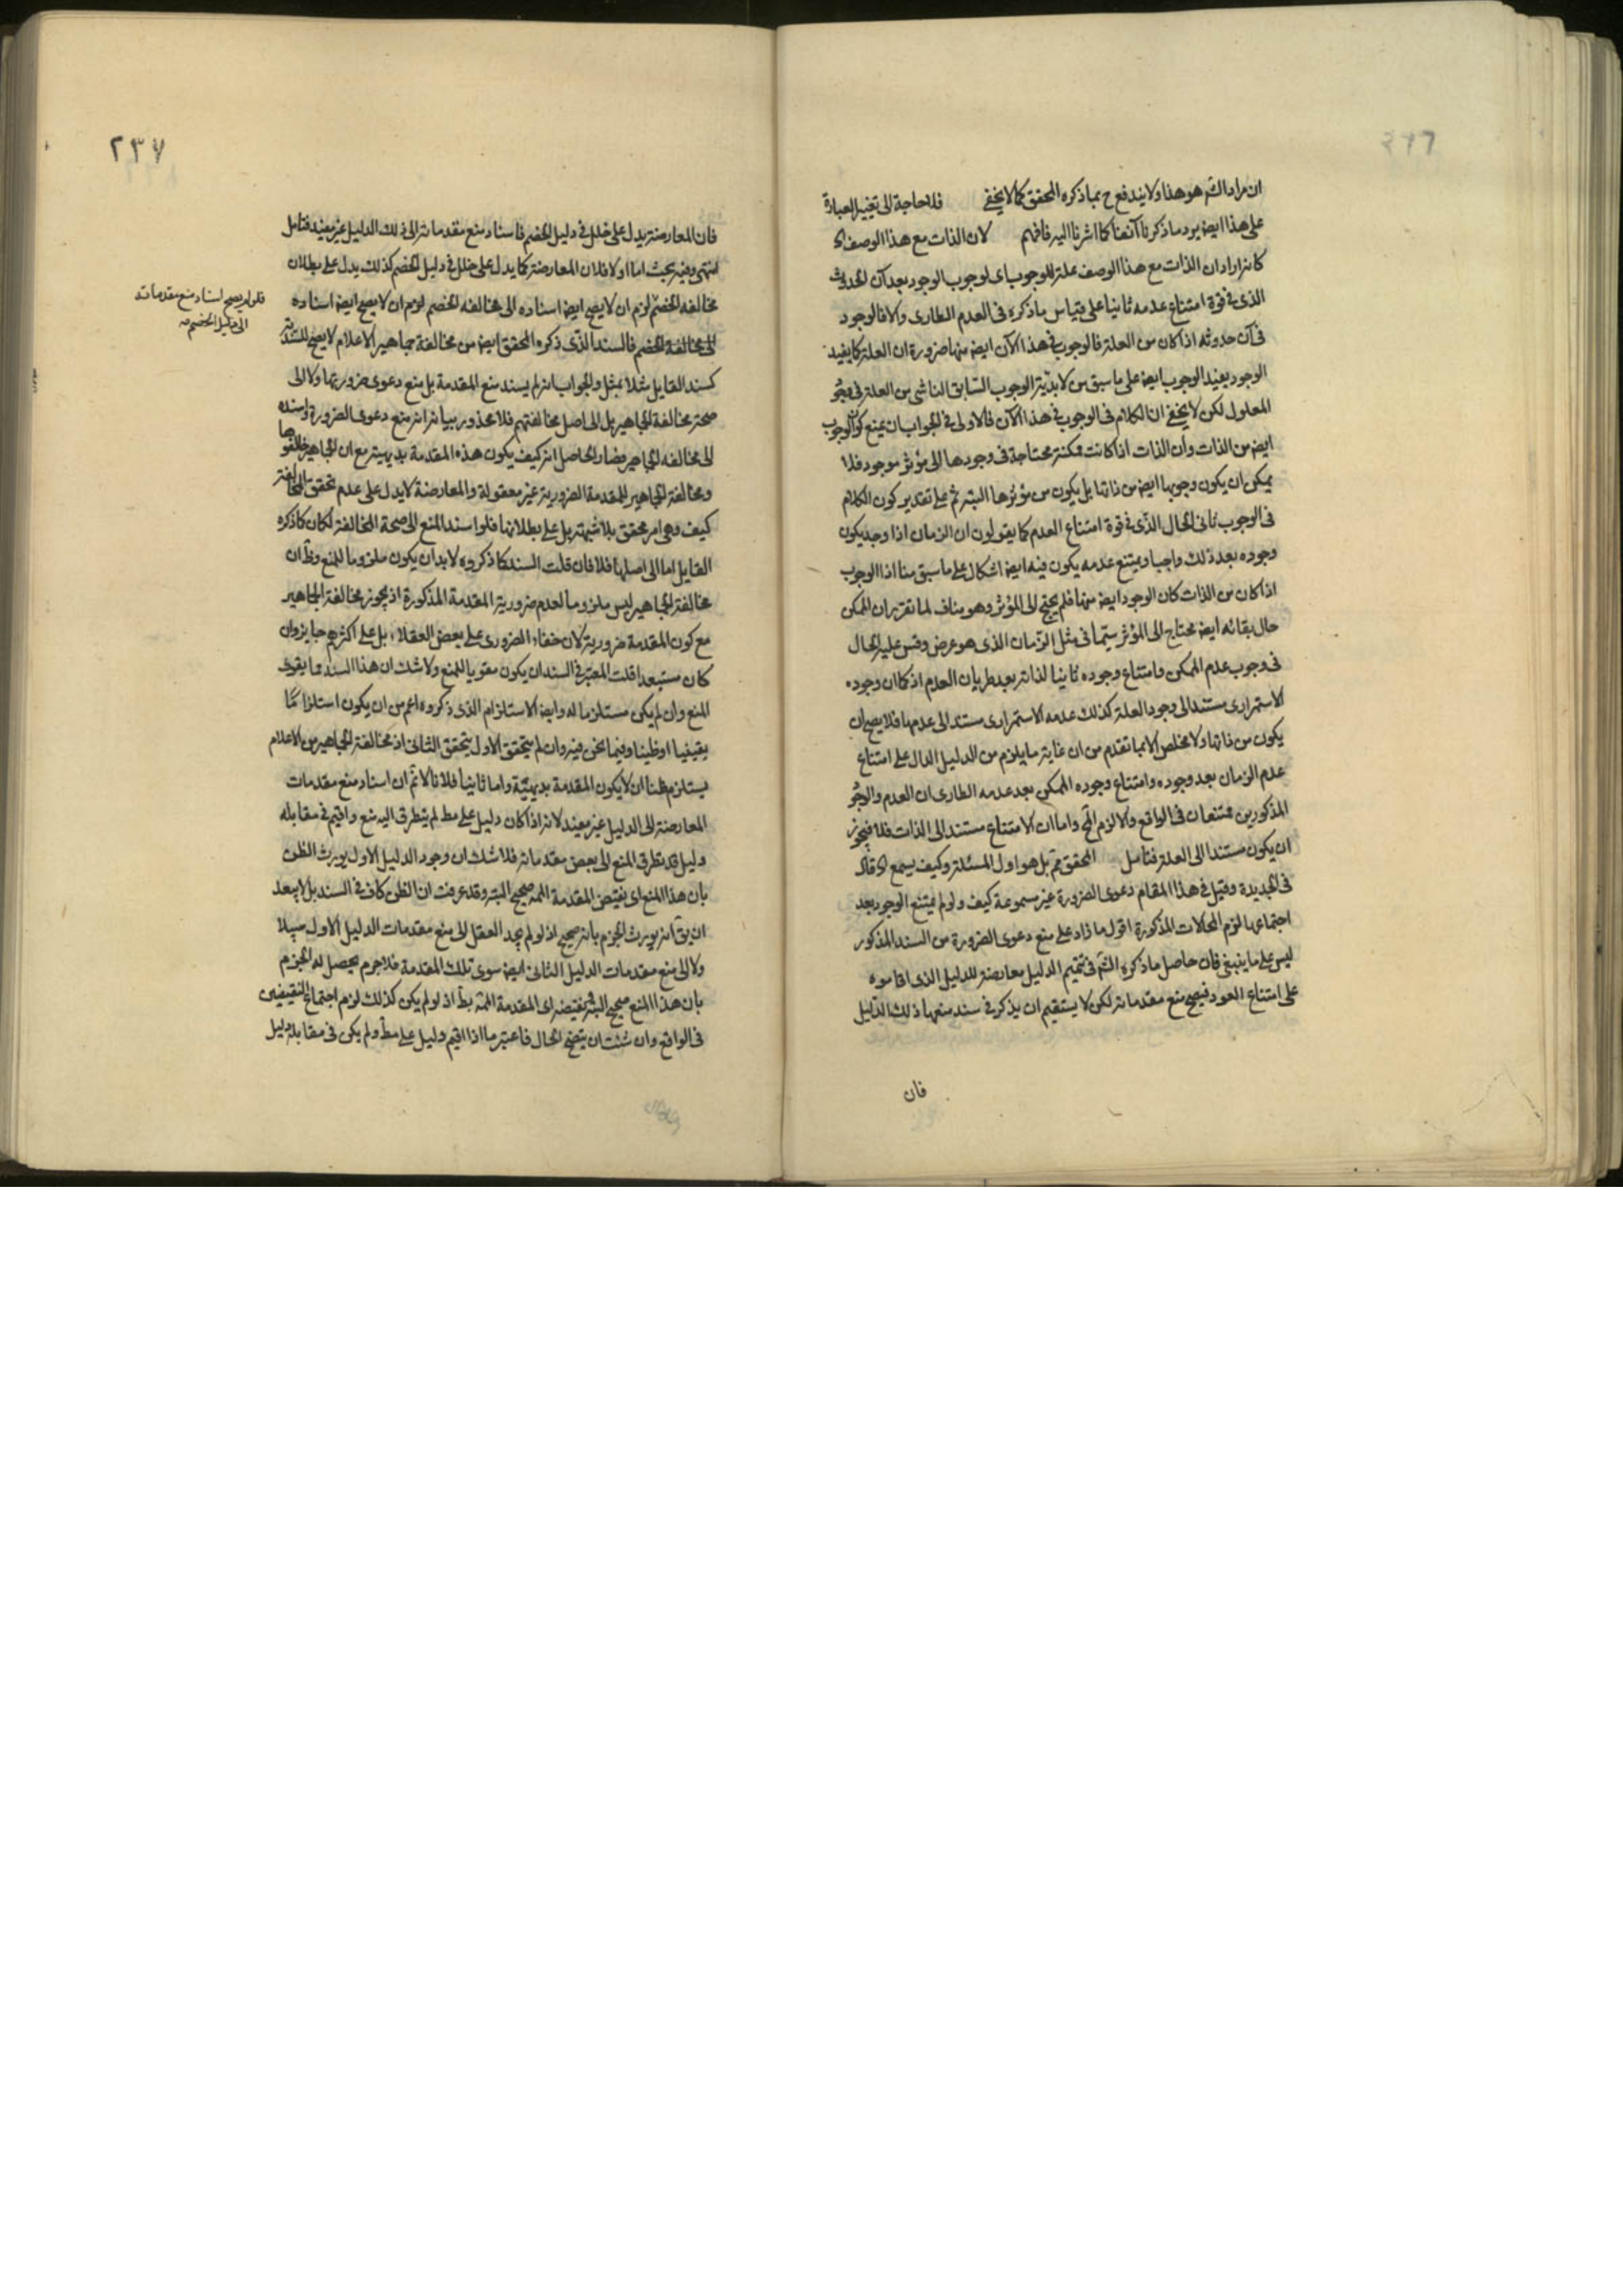 ان مراد الش هو هذا ولا يندفع ح بما ذكره المحقق كما لا يخفى فلا حاجة الى تغيير العبارة
على هذا ايض يرد ما ذكرنا آنفا كما اشرنا اليه فافهم لان الذات مع هذا الوصف
كانه اراد ان الذات مع هذا الوصف علة للوجوب اى لوجوب الوجود بعد آن الحدوث
الذى فى قوة امتناع عدمه ثانيا على قياس ما ذكره فى العدم الطارى والا فالوجود
فى آن حدوثه اذا كان من العلة فالوجوب فى هذا الآن ايض منها ضرورة ان العلة كما يفيد
الوجود يفيد الوجوب ايض على ما سبق من لابدية الوجوب السابق الناشى من العلة فى وجود
المعلول لكن لا يخفى ان الكلام فى الوجوب فى هذا الآن فالاولى فى الجواب ان يمنع كون الوجوب
ايض من الذات وان الذات اذا كانت ممكنة محتاجة فى وجودها الى مؤثر موجود فلا
يمكن ان يكون وجوبها ايض من ذاتها بل يكون من مؤثرها البتة ثم على تقدير كون الكلام
فى الوجوب ثانى الحال الذى فى قوة امتناع العدم كما يقولون ان الزمان اذا وجد يكون
وجوده بعد ذلك واجبا ويمتنع عدمه يكون فيه ايض اشكال على ما سبق منا اذ الوجوب
اذا كان من الذات كان الوجود ايض منها فلم يحتج الى المؤثر وهو مناف لما تقرر ان الممكن
حال بقائه ايض محتاج الى المؤثر سيما فى مثل الزمان الذى هو عرض وقس عليه الحال
فى وجوب عدم الممكن وامتناع وجوده ثانيا لذاته بعد طريان العدم اذ كما ان وجوده
الاستمرارى مستند الى وجود العلة كذلك عدمه الاستمرارى مستند الى عدمها فلا يصح ان
يكون من ذاتها ولا مخلص الا بما تقدم من ان غاية ما يلزم من الدليل الدال على امتناع
عدم الزمان بعد وجوده وامتناع وجوده الممكن بعد عدمه الطارى ان العدم والوجود
المذكورين ممتنعان فى الواقع والا لزم المح واما ان الامتناع مستند الى الذات فلا فيجوز
ان يكون مستندا الى العلة فتامل المحقق مم بل هو اول المسئلة وكيف يسمع قال
فى الجديدة وقيل فى هذا المقام دعوى الضرورة غير مسموعة كيف ولو لم يمتنع الوجود بعد
اجتماعها لزم المحالات المذكورة اقول ما زاد على منع دعوى الضرورة من السند المذكور
ليس على ما ينبغى فان حاصل ما ذكره الش فى تتميم الدليل معارضة للدليل الذى اقاموه
على امتناع العود فيصح منع مقدماته لكن لا يستقيم ان يذكر فى سند منعها ذلك الدليل
فان
٢٣٧
فان المعارضة يدل على خلل فى دليل الخصم فاسناد منع مقدماته الى ذلك الدليل غير مفيد فتامل
انتهى وفيه بحث اما اولا فلان المعارضة كما يدل على خلل فى دليل الخصم كذلك يدل على بطلان
مخالفة الخصم لزم ان لا يصح ايض اسناده الى مخالفة الخصم لزم ان لا يصح ايض اسناده
الى مخالفة الخصم فالسند الذى ذكره المحقق ايض من مخالفة جماهير الاعلام لا يصح للسندية
كسند القايل مثلا بمثل والجواب انه لم يسند منع المقدمة بل منع دعوى ضرورتها ولا الى
صحة مخالفة الجماهير بل الى اصل مخالفتهم فلا محذور بيانه انه منع دعوى الضرورة واسنده
الى مخالفة الجماهير فصار الحاصل انه كيف يكون هذه المقدمة بديهية مع ان الجماهير خالفوها
ومخالفة الجماهير للمقدمة الضرورية غير معقولة والمعارضة لا يدل على عدم تحقق المخالفة
كيف وهى امر محقق بلا شبهة بل على بطلانها فلو اسند المنع الى صحة المخالفة لكان كما ذكره
القايل اما الى اصلها فلا فان قلت السند كما ذكروه لا بد ان يكون ملزوما للمنع وظ ان
مخالفة الجماهير ليس ملزوما لعدم ضرورية المقدمة المذكورة اذ يجوز مخالفة الجماهير
مع كون المقدمة ضرورية لان خفاء الضرورى على بعض العقلاء بل على اكثرهم جايز وان
كان مستبعدا قلت المعتبر فى السند ان يكون مقويا للمنع ولا شك ان هذا السند مما يقوى
المنع وان لم يكن مستلزما له وايض الاستلزام الذى ذكروه اعم من ان يكون استلزاما
يقينيا او ظنيا وفيما نحن فيه وان لم يتحقق الاول يتحقق الثانى اذ مخالفة الجماهير من الاعلام
يستلزم ظنا ان لا يكون المقدمة بديهية واما ثانيا فلانا لا نم ان اسناد منع مقدمات
المعارضة الى الدليل غير مفيد لانه اذا كان دليل على مط لم يتطرق اليه منع واقيم فى مقابله
دليل قد تطرق المنع الى بعض مقدماته فلا شك ان وجود الدليل الاول يورث الظن
بان هذا المنع اى نقيض المقدمة المم صحيح البتة وقد عرفت ان الظن كاف فى السند بل لا يبعد
ان يق انه يورث الجزم بانه صحيح اذ لو لم يجد العقل الى منع مقدمات الدليل الاول سبيلا
ولا الى منع مقدمات الدليل الثانى ايض سوى تلك المقدمة فلا جرم يحصل له الجزم
بان هذا المنع صحيح البتة ونقيضه اى المقدمة المم بط اذ لو لم يكن كذلك لزم اجتماع النقيضين
فى الواقع وان شئت ان يتضح الحال فاعتبر ما اذا اقيم دليل على مط ولم يكن فى مقابله دليل
فلو لم يصح اسناد منع مقدماته
الى دليل الخصم صح